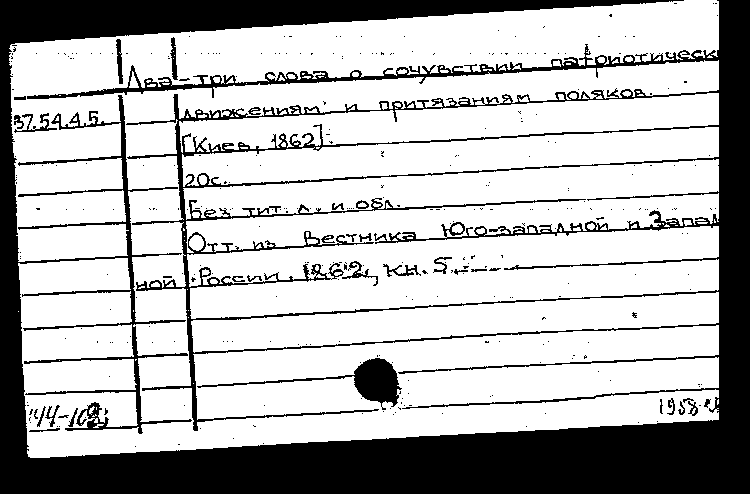 Два-три слова о сочувствии патриотическ
37.54.4.5. движениям и притязаниям поляков.
[Киев, 1862].
20с.
Без тит. л. и обл.
Отт. из Вестника Юго-западной и Запад
ной России. 1862, кн. 5.
44-102
1958